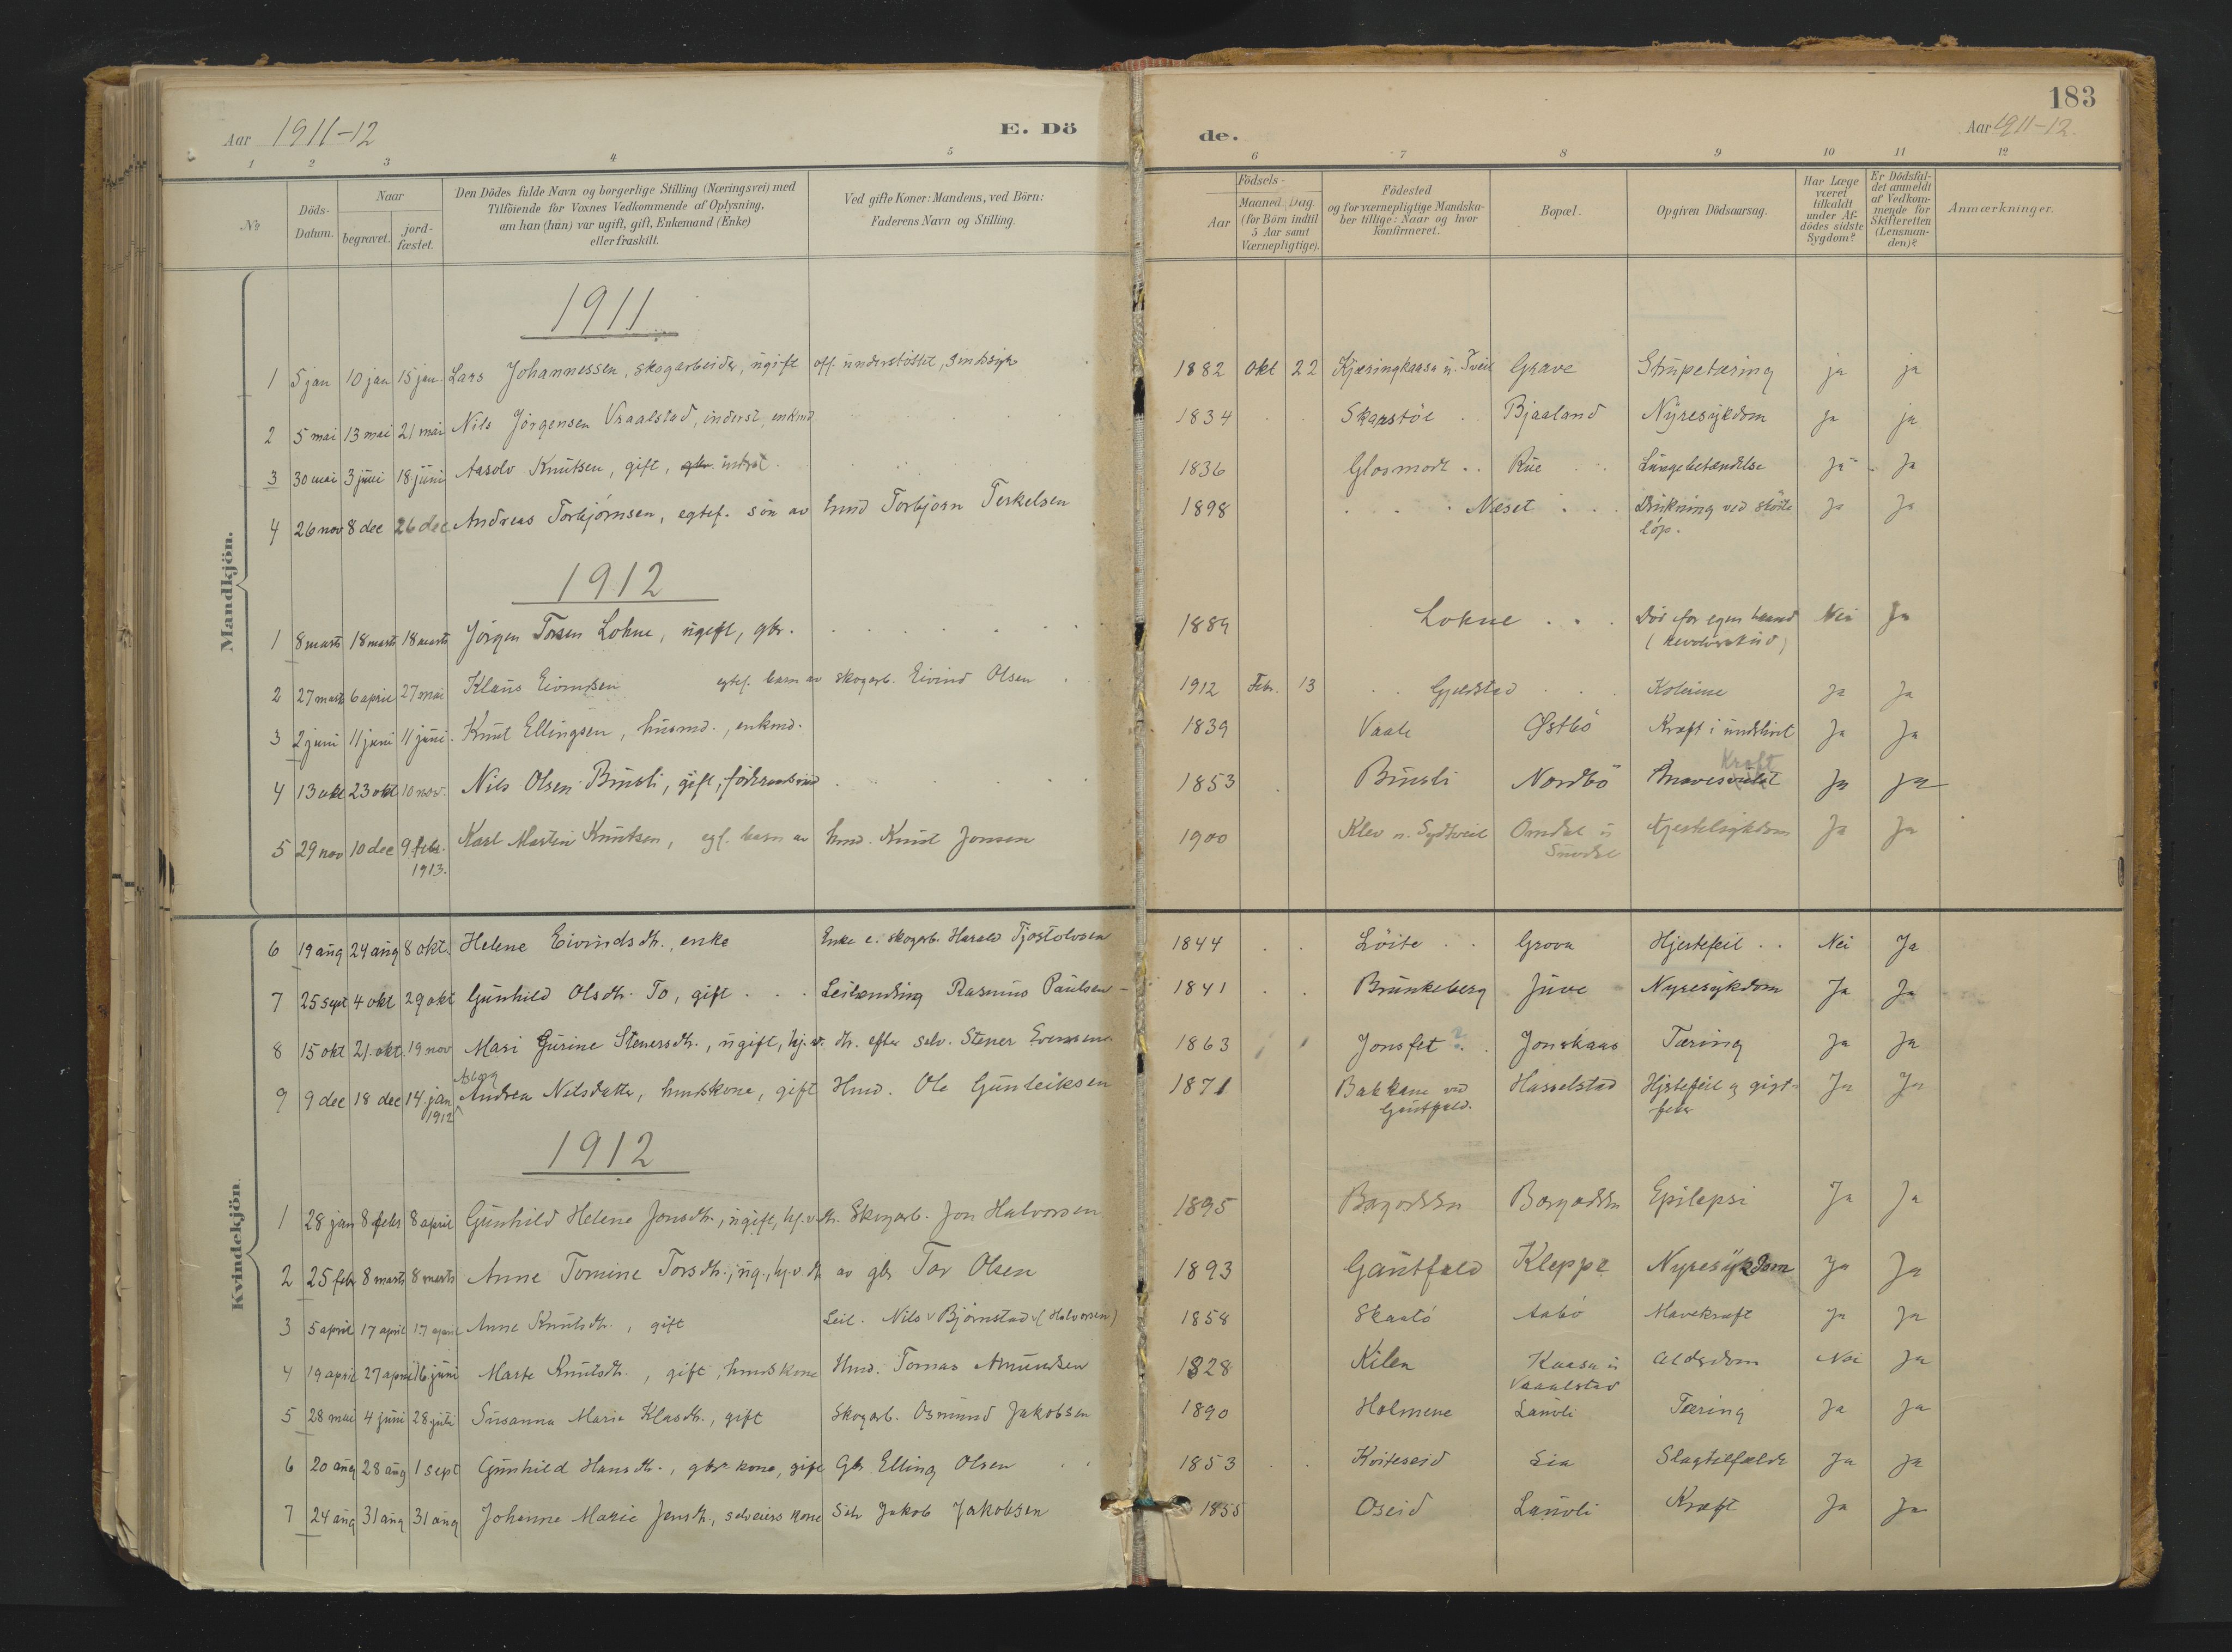 183
Aar 1911-12 E. Dö de. Aar 1911-12.
1 2 3 4 5 6 7 8 9 10 11 12
№
Döds-Datum.
Naar
begravet.
jord-fæstet.
Den Dödes fulde Navn og borgerlige Stilling (Næringsvei) med
Tilföiende for Voxnes Vedkommende af Oplysning,
om han (hun) var ugift, gift, Enkemand (Enke)
eller fraskilt.
Ved gifte Koner: Mandens, ved Börn:
Faderens Navn og Stilling.
Födsels-
Aar
Maaned. Dag.
(for Börn indtil
5 Aar samt
Værnepligtige).
Födested
og for værnepligtige Mandska-
ber tillige: Naar og hvor
konfirmeret.
Bopæl.
Opgiven Dödsaarsag.
Har Læge
været
tilkaldt
under Af-
dödes sidste
Sygdom?
Er Dödsfal-
det anmeldt
af Vedkom-
mende for
Skifteretten
(Lensman-
den)?
Anmærkninger.
Mandkjön.
1911
1 5 jan 10 jan 15 jan. Lars Johannessen, skogarbeider, ugift off. understöttet, sindssyk 1882 Okt 22 Kjæringkaasa u. Tveit Grave Strupetæring ja ja
2 5 mai 13 mai 21 mai Nils Jörgensen Vraalstad, inderst, enkmd 1834 Skarstöl Bjaaland Nyresykdom Ja ja
3 30 mai 3 juni 18 juni Aasolv Knutsen, gift, inderst. 1836 Glosmodt Rue Lungebetændelse Ja Ja
4 26 nov 8 dec 26 dec Andreas Torbjörnsen, egtef. sön av husmd Torbjörn Terkelsen 1898 Næset Drukning ved sköite
löp. Ja Ja
1912
1 8 marts 18 marts 18 marts Jörgen Torsen Lohne, ugift, gbr. 1889 Lohne Död for egen haand
(revolverskud) Nei Ja
2 27 marts 6 april 27 mai Klaus Eivindsen egtef. barn av skogarb. Eivind Olsen 1912 Febr. 13 Gjeldstad Kolerine Ja Ja
3 2 juni 11 juni 11 juni. Knut Ellingsen, husmd., enkmd. 1839 Vaale Østbö Kræft i underlivet Ja Ja
4 13 okt 23 okt 10 nov. Nils Olsen Busli, gift, föderaadsmd 1853 Busli Nordbö Mavesvulst Kræft Ja Ja
5 29 nov 10 dec 9 febr.
1913. Karl Martin Knutsen, egt. barn av hmd. Knut Jonsen 1900 Klev u. Sydtveit Omdal u
Suvdal Kjertelsykdom Ja Ja
Kvindekjön.
6 19 aug 24 aug 8 okt. Helene Eivindsdtr., enke Enke e. skogarb. Harald Tjostolvsen 1844 Löite Grova Hjertefeil Nei Ja
7 25 sept 4 okt 29 okt Gunhild Olsdtr. To, gift Leilending Rasmus Paulsen 1841 Brunkeberg Juve Nyresykdom Ja Ja
8 15 okt 21 okt. 19 nov Mari Gurine Stenersdtr., ugift, hj.v. dtr. efter selv. Stener Evensen. 1863 Jonsfet ? Jonskaas Tæring Ja Ja
9 9 dec 18 dec 14. jan
1912 Asberg Andrea Nilsdatter, husmdskone, gift Hmd. Ole Gunleiksen 1871 Bakkane ved
Gautfald. Hasselstad Hjertefeil og gigt-
feber Ja Ja
1912
1 28 jan 8 febr 8 april Gunhild Helene Jonsdtr., ugift, hj.v. dtr. Skogarb. Jon Halvorsen 1895 Epilepsi Ja Ja
2 25 febr 8 marts 8 marts Anne Tomine Torsdtr., ug., hj.v. dtr av gbr Tor Olsen 1893 Gautfald Kleppe Nyresykdom Ja Ja
3 5 april 17 april 17 april Anne Knutsdtr., gift Leil. Nils Björnstad (Halvorsen) 1858 Skaatö Aabö Mavekræft Ja Ja
4 19 april 27 april 16 juni Marte Knutsdtr., gift, hmdskone Hmd. Tomas Amundsen 1828 Kilen Kaasa u
Vraalstad Alderdom Nei Ja
5 28 mai 4 juni 28 juli Susanna Maria Klasdtr., gift Skogarb. Osmund Jakobsen 1890 Holmene Lauvli Tæring Ja Ja
6 20 aug 28 aug 1 sept Gunhild Hansdtr., gbr kone, gift Gbr Elling Olsen 1853 Kviteseid Lia Slagtilfælde Ja Ja
7 24 aug 31 aug 31 aug Johanne Marie Jensdtr., selveiers kone Selv Jakob Jakobsen 1855 Oseid Lauvli Kræft Ja Ja